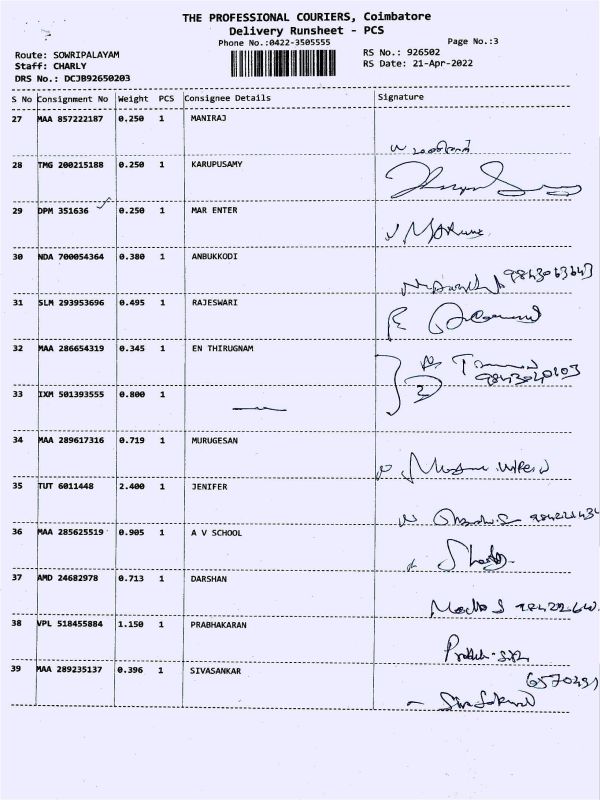 THE PROFESSIONAL COURIERS, Coimbatore
Delivery Runsheet - PCS
Phone No.:0422-3505555 Page No.:3
Route: SOWRIPALAYAM RS No.: 926502
Staff: CHARLY RS Date: 21-Apr-2022
DRS No.: DCJB92650203
S No Consignment No Weight PCS Consignee Details Signature
27 MAA 857222187 0.250 1 MANIRAJ
28 TMG 200215188 0.250 1 KARUPUSAMY
29 DPM 351636 0.250 1 MAR ENTER
30 NDA 700054364 0.380 1 ANBUKKODI
9843063643
31 SLM 293953696 0.495 1 RAJESWARI
32 MAA 286654319 0.345 1 EN THIRUGNAM
2
33 IXM 501393555 0.800 1
34 MAA 289617316 0.719 1 MURUGESAN
35 TUT 6011448 2.400 1 JENIFER
36 MAA 285625519 0.905 1 A V SCHOOL
37 AMD 24682978 0.713 1 DARSHAN
38 VPL 518455884 1.150 1 PRABHAKARAN
39 MAA 289235137 0.396 1 SIVASANKAR